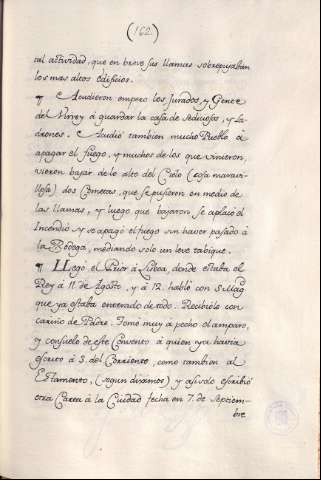 (162)
tal actividad, que en breve sus llamas sobrepujaban
los mas altos edificios.
¶ Acudieron empero los Jurados, y Gente
del Virrey à guardar la casa de sediciosos, y La-
drones. Acudiò tambien mucho Pueblo à
apagar el fuego, y muchos de los que vinieron,
vieron bajar de lo alto del Cielo (cosa maravi-
llosa) dos Cometas, que se pusieron en medio de
las llamas, y luego que bajaron se aplacò el
Incendio y se apagò el fuego sin haver pasado à
la Bodega, mediando solo un leve tabique.
¶ Llegò el Prior à Lisboa, donde estaba el
Rey à 11 de Agosto, y à 12. hablò con S. Mag
que ya estaba enterado de todo. Recibiòle con
cariño de Padre. Tomò muy a pecho el amparo,
y consuelo de este Convento à quien ya havia
escrito à 3. del Corriente, como tambien al
Estamento, (segun diximos) y assi solo escribiò
otra Carta à la Ciudad fecha en 7. de Septiem-
bre